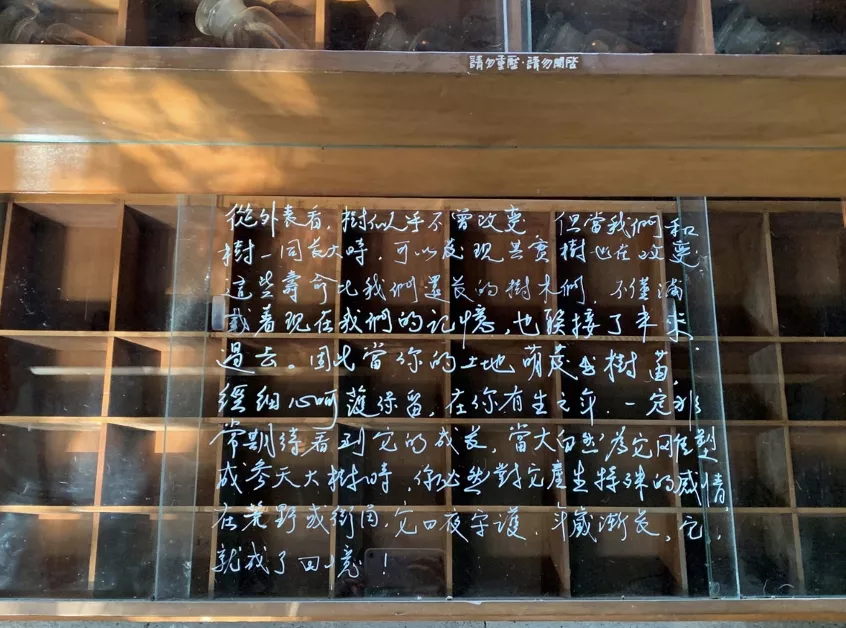 請勿重壓·請勿開啓
從外表看,樹似乎不曾改變,但當我們和
樹一同長大時,可以發現其實樹也在改變,
這些壽命比我們還長的樹木們,不僅滿
載着現在我們的記憶,也联接了未來
過去。因此當你的土地萌發出樹苗,
經細心呵護保留,在你有生之年,一定非
常期待看到它的成長,當大自然為它雕塑
成參天大樹時,你必然對它產生特殊的感情,
在荒野或街角,它日夜守護,年歲漸長,它,
就成了回憶!